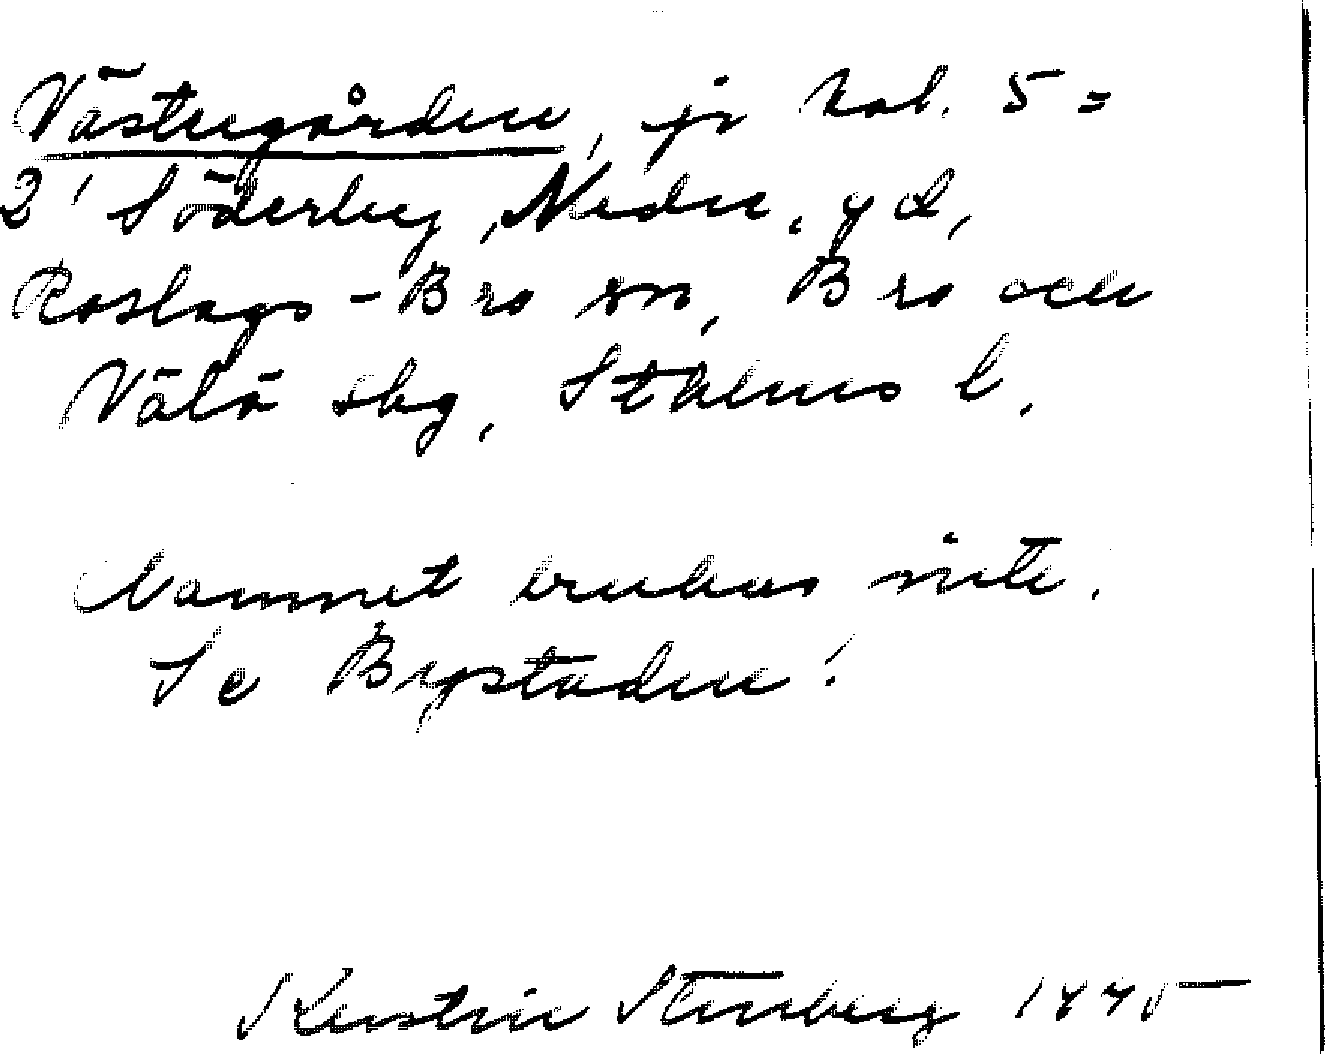 Västregården, jr kat. 5 =
2' Söderby, Nedre, gd,
Roslags-Bro sn, Bro och
Vätö skg, Sthlms l.
Namnet brukas inte.
Se Bystaden!
Kerstin Stenberg 1945